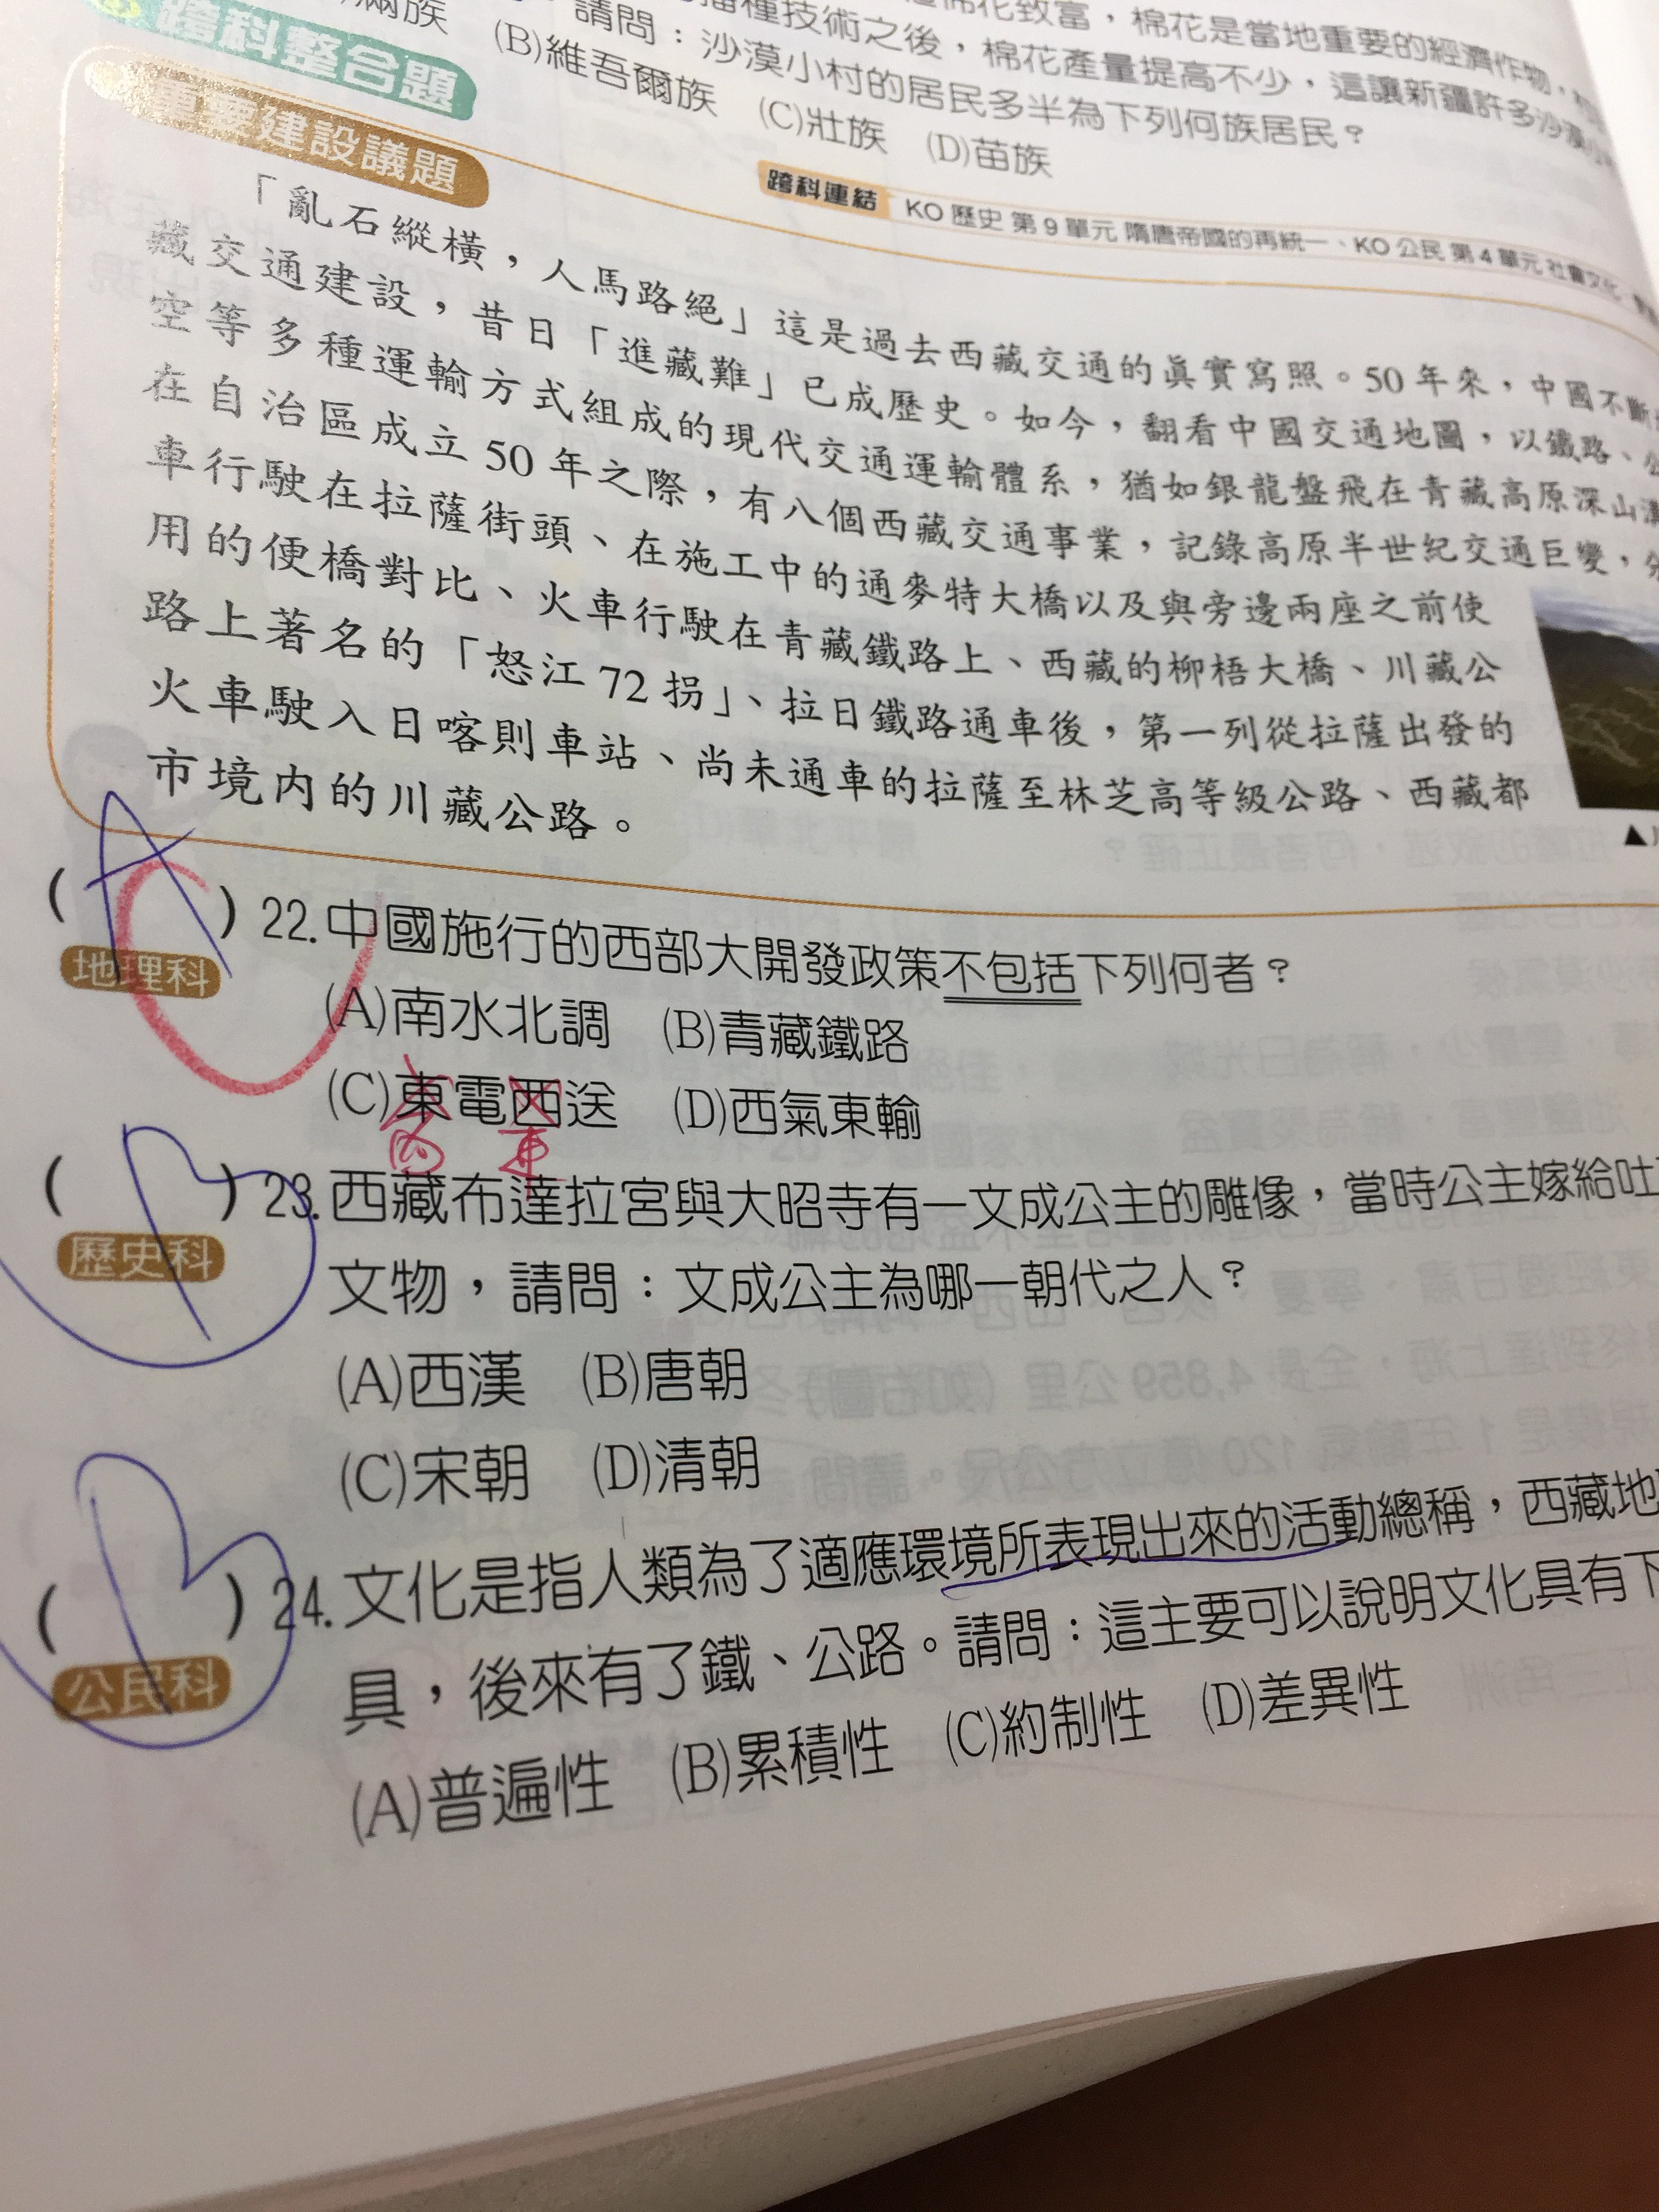 棉花致富，棉花是當地重要的經濟作物，
播種技術之後，棉花產量提高不少，這讓新疆許多沙漠小
請問：沙漠小村的居民多半為下列何族居民？
滿族 (B)維吾爾族 (C)壯族 (D)苗族
跨科整合題
跨科連結 KO 歷史 第 9 單元 隋唐帝國的再統一、KO 公民 第 4 單元 社會文化
重要建設議題
「亂石縱橫，人馬路絕」這是過去西藏交通的真實寫照。50 年來，中國不斷
藏交通建設，昔日「進藏難」已成歷史。如今，翻看中國交通地圖，以鐵路、公
空等多種運輸方式組成的現代交通運輸體系，猶如銀龍盤飛在青藏高原深山
在自治區成立 50 年之際，有八個西藏交通事業，記錄高原半世紀交通巨變，
車行駛在拉薩街頭、在施工中的通麥特大橋以及與旁邊兩座之前使
用的便橋對比、火車行駛在青藏鐵路上、西藏的柳梧大橋、川藏公
路上著名的「怒江 72 拐」、拉日鐵路通車後，第一列從拉薩出發的
火車駛入日喀則車站、尚未通車的拉薩至林芝高等級公路、西藏都
市境內的川藏公路。
▲
( A C ) 22. 中國施行的西部大開發政策不包括下列何者？
地理科
(A)南水北調 (B)青藏鐵路
(C)東電西送 (D)西氣東輸
西 東
( B ) 23. 西藏布達拉宮與大昭寺有一文成公主的雕像，當時公主嫁給吐
歷史科
文物，請問：文成公主為哪一朝代之人？
(A)西漢 (B)唐朝
(C)宋朝 (D)清朝
( B ) 24. 文化是指人類為了適應環境所表現出來的活動總稱，西藏地
公民科
具，後來有了鐵、公路。請問：這主要可以說明文化具有下
(A)普遍性 (B)累積性 (C)約制性 (D)差異性